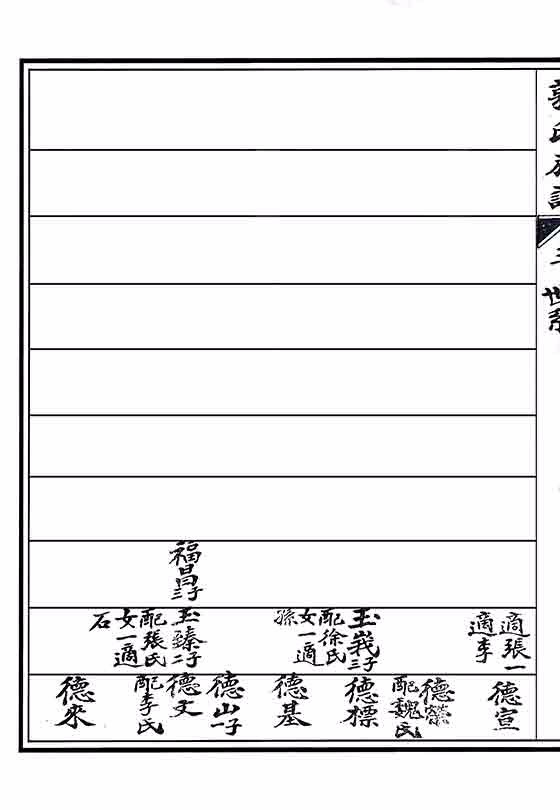 郭氏族譜
世系
福昌三子
適張一
適李
玉峩三子
配徐氏
女一適
孫
玉臻二子
配張氏
女一適
石
德宣
德榮
配魏氏
德標
德基
德山一子
德文
配李氏
德來